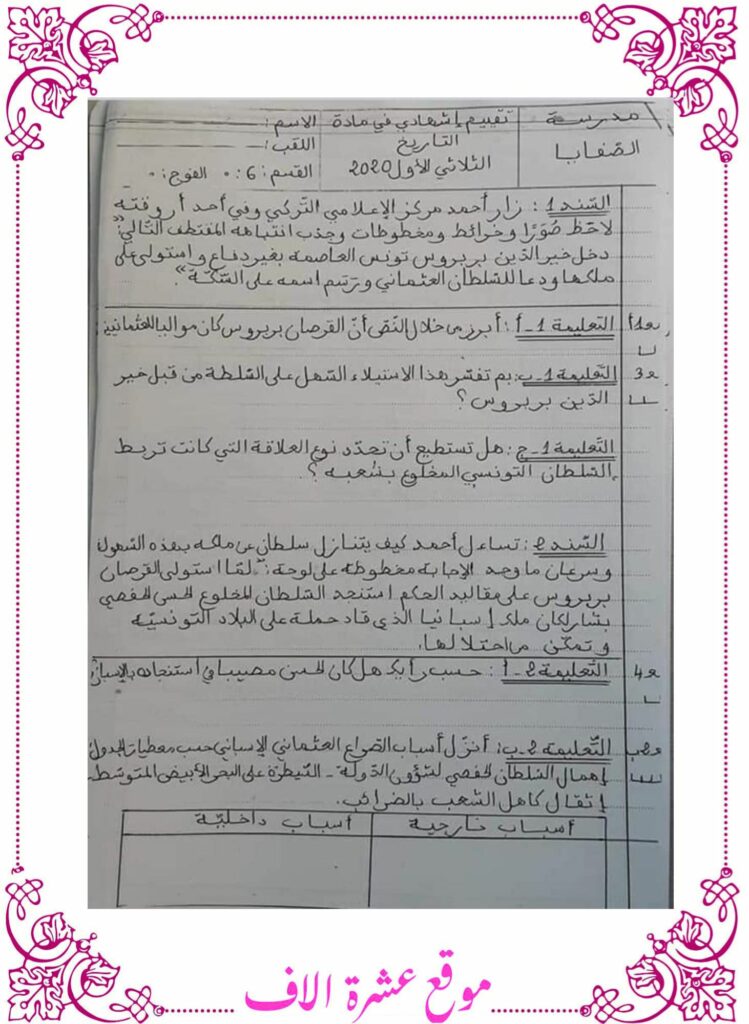 مدرسة
الصّفايا
تقييم إشهادي في مادة
التاريخ
الثلاثي الأول 2020
الاسم:
اللقب:
القسم: 6: الفوج:
السّند 1: زار أحمد مركز الإعلامي التّركي وفي أحد أروقته
لاحظ صُوَرًا وخرائط ومخطوطات وجذب انتباهه المقتطف التّالي: "
دخل خير الدّين بربروس تونس العاصمة بغير دفاع و استولى على
ملكها ودعا للسّلطان العثماني ورسم اسمه على السّكّة".
مع1أ
التّعليمة 1 - أ: أبرز من خلال النّصّ أنّ القرصان بربروس كان مواليا للعثمانيين
مع3
التّعليمة 1 - ب: بم تفسّر هذا الاستيلاء السّهل على السّلطة من قبل خير
الدّين بربروس؟
التّعليمة 1 - ج: هل تستطيع أن تحدّد نوع العلاقة التي كانت تربط
السّلطان التّونسي المخلوع بشعبه؟
السّند 2: تساءل أحمد كيف يتنازل سلطان عن ملكه بهذه السّهولة
وسرعان ما وجد الإجابة مخطوطة على لوحة: "لمّا استولى القرصان
بربروس على مقاليد الحكم استنجد السّلطان المخلوع الحسن الحفصي
بشارلكان ملك إسبانيا الذي قاد حملة على البلاد التّونسيّة
و تمكّن من احتلالها.
مع4
التّعليمة 2 - أ: حسب رأيك هل كان الحسن مصيبا في استنجاده بالإسبان
مع2ب
التّعليمة 2 - ب: أنزّل أسباب الصّراع العثماني الإسباني حسب معطيات الجدول
إهمال السّلطان الحفصي لشؤون الدّولة - السّيطرة على البحر الأبيض المتوسّط -
إثقال كاهل الشّعب بالضّرائب.
أسباب خارجية
أسباب داخليّة
موقع عشرة الاف